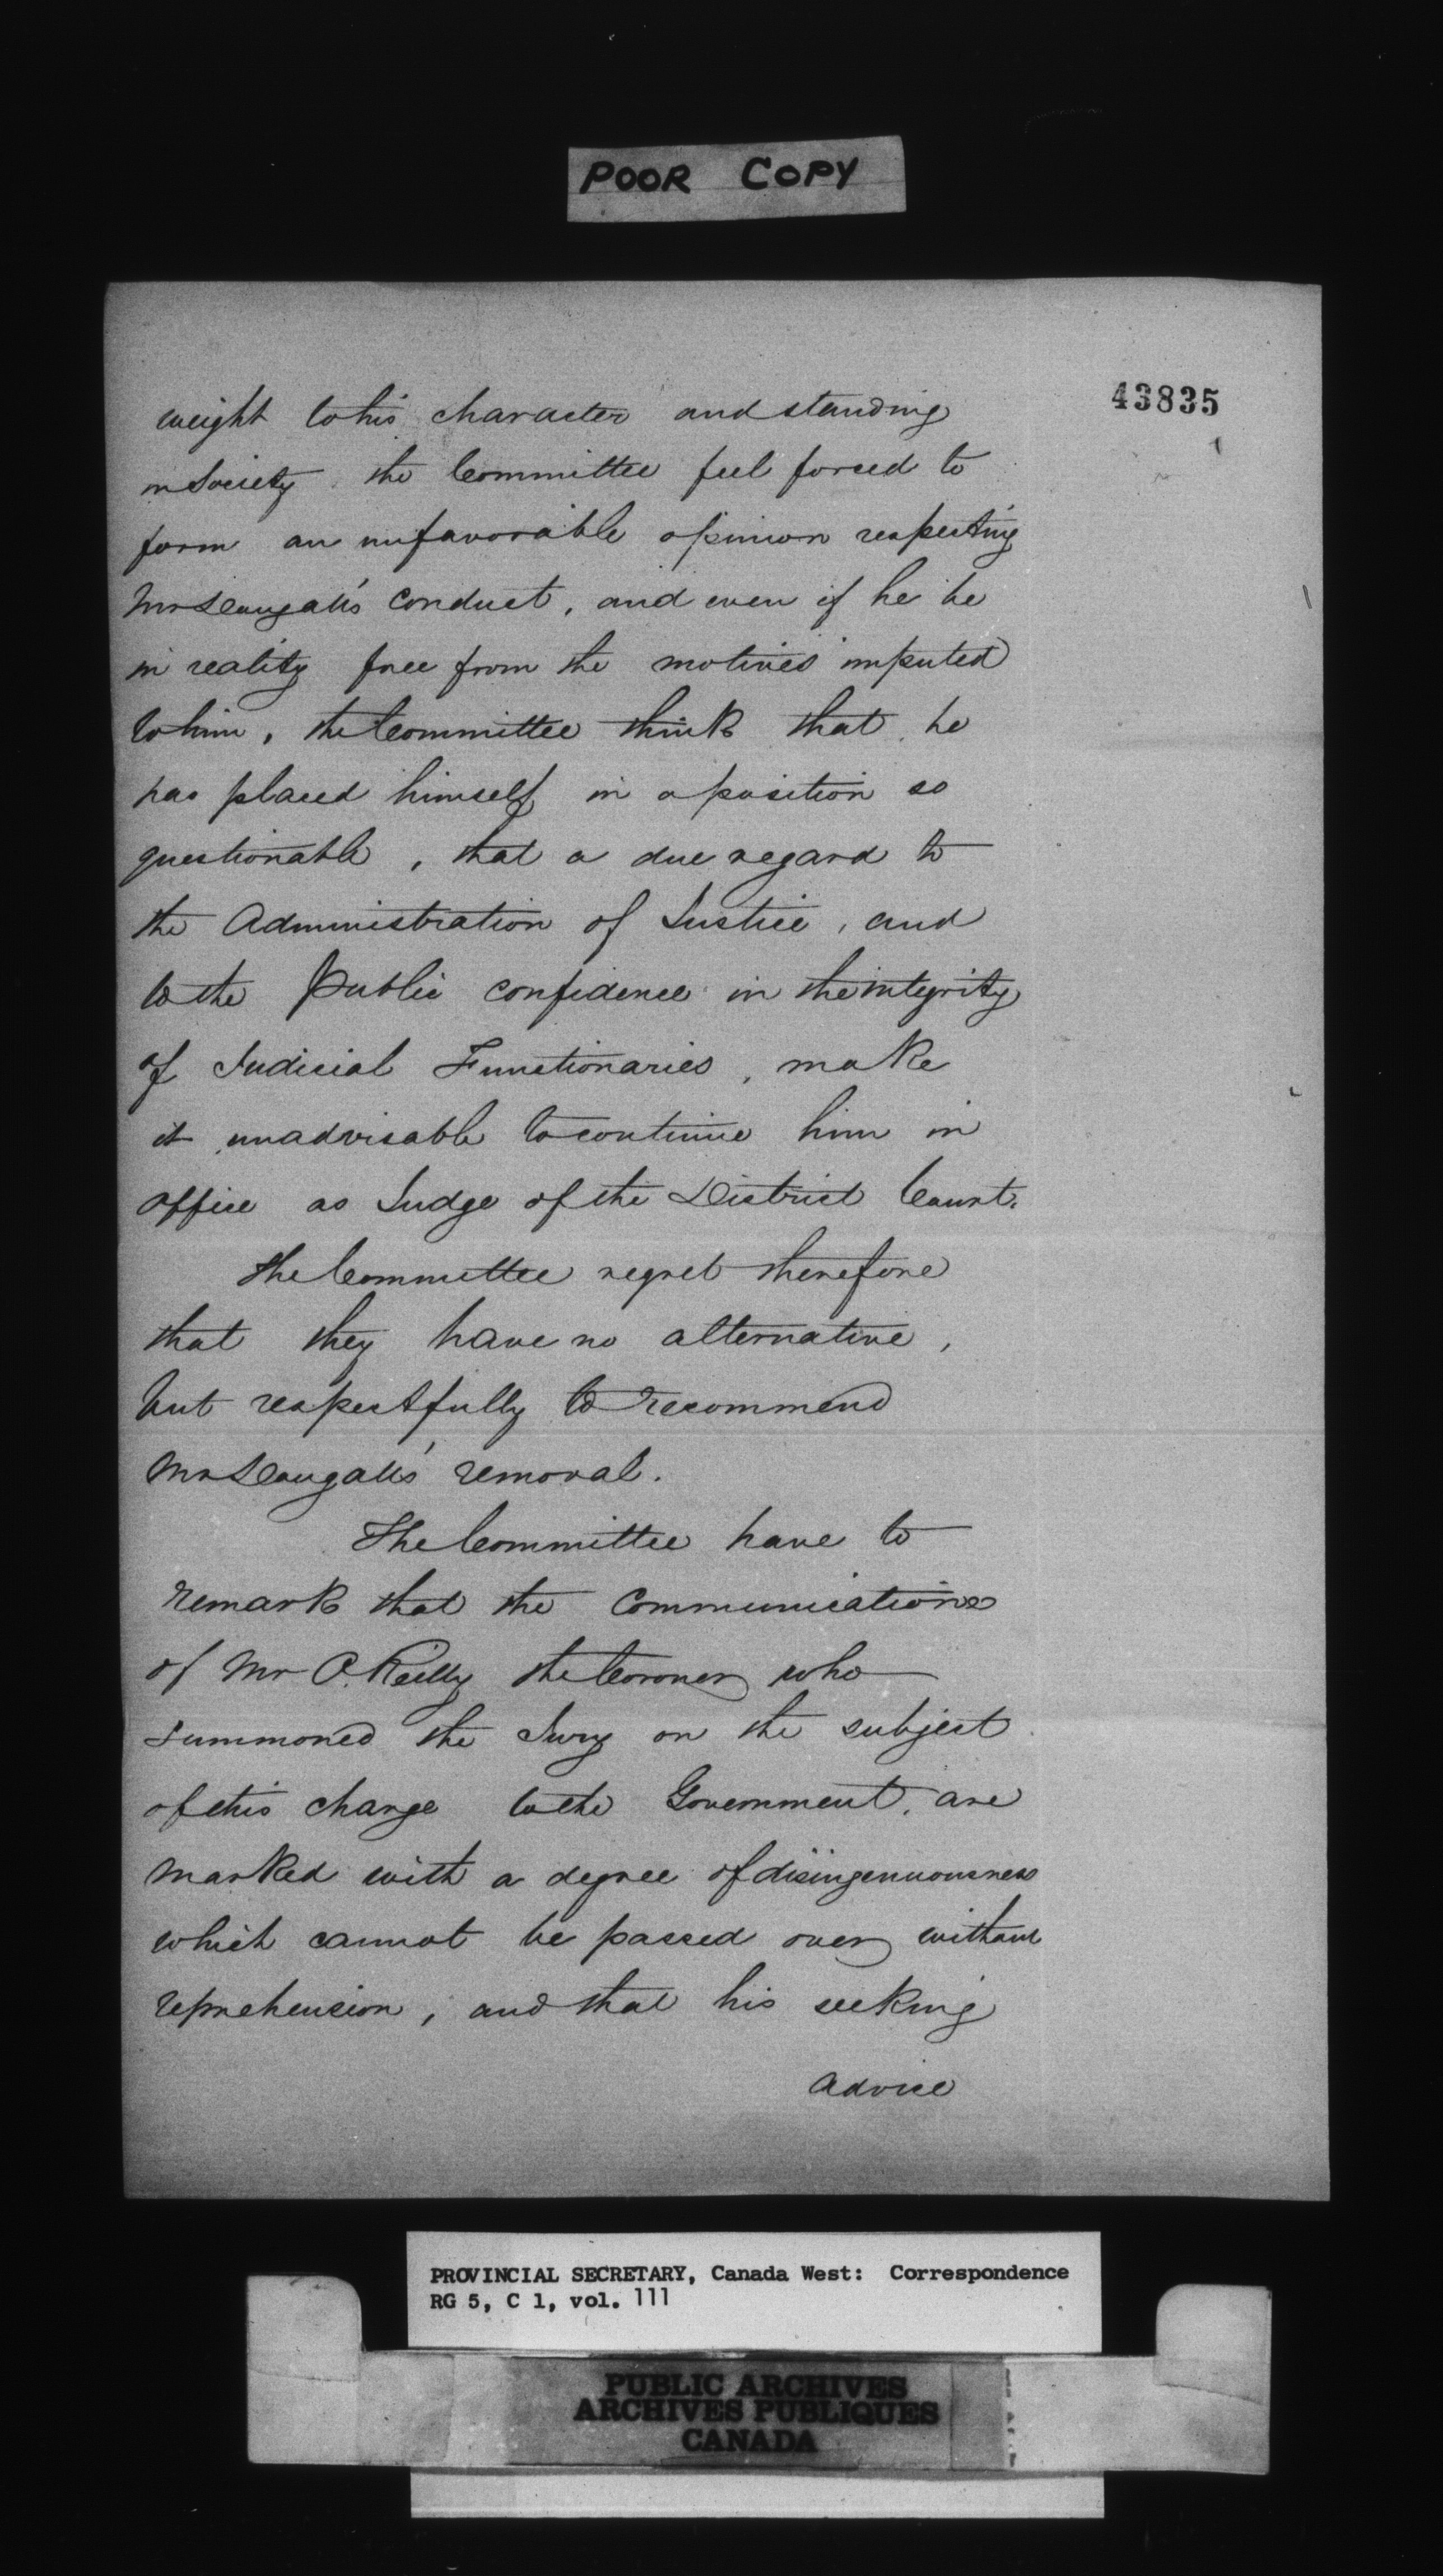 POOR COPY
43835
weight to his character and standing
in Society the Committee feel forced to
form an unfavorable opinion respecting
Mr McDougall's conduct, and even if he be
in reality free from the motives imputed
to him, the Committee think that he
has placed himself in a position so
questionable, that a due regard to
the Administration of Justice, and
to the Public confidence in the integrity
of Judicial Functionaries, make
it unadvisable to continue him in
office as Judge of the District Court.
The Committee regret therefore
that they have no alternative,
but respectfully to recommend
removal.
The Committee have to
remark that the Communications
of Mr O.Reilly the Coroner who
summoned the Jury on the subject
of this charge to the Government, are
marked with a degree of disingenuousness
which cannot be passed over without
reprehension, and that his seeking
advice
PROVINCIAL SECRETARY, Canada West: Correspondence
RG 5, C 1, vol. 111
PUBLIC ARCHIVES
ARCHIVES PUBLIQUES
CANADA